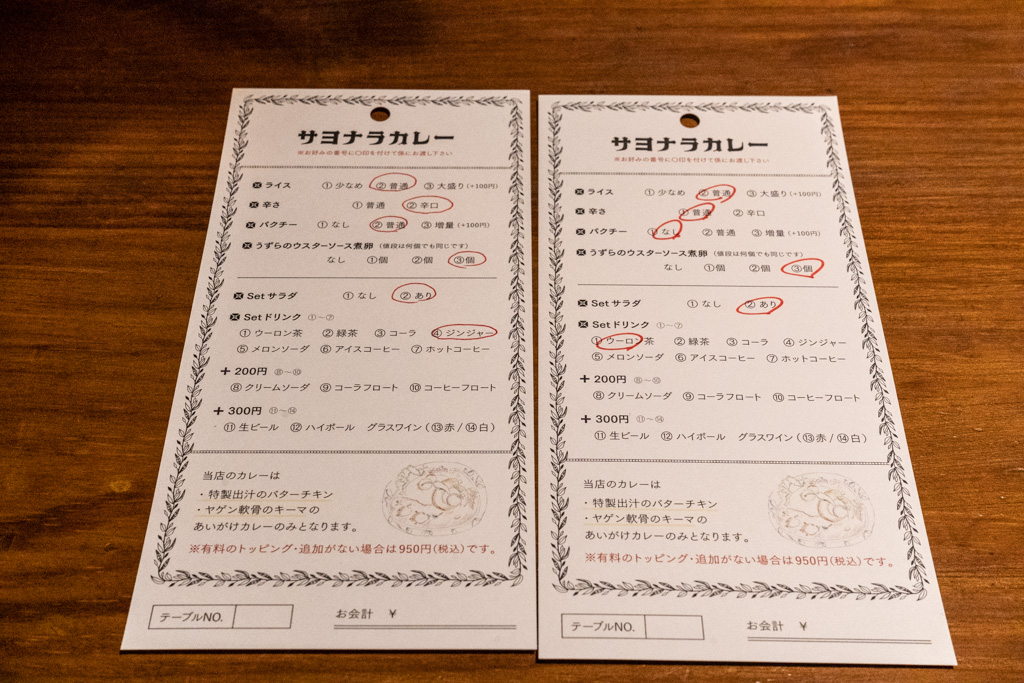 サヨナラカレー
※お好みの番号に〇印を付けて係にお渡し下さい
※ ライス ①少なめ ②普通 ③大盛り(+100円)
※ 辛さ ①普通 ②辛口
※ パクチー ①なし ②普通 ③増量(+100円)
※ うずらのウスターソース煮卵(値段は何個でも同じです)
なし ①個 ②個 ③個
※ Setサラダ ①なし ②あり
※ Setドリンク ①〜⑦
①ウーロン茶 ②緑茶 ③コーラ ④ジンジャー
⑤メロンソーダ ⑥アイスコーヒー ⑦ホットコーヒー
+200円 ⑧〜⑩
⑧クリームソーダ ⑨コーラフロート ⑩コーヒーフロート
+300円 ⑪〜⑭
⑪生ビール ⑫ハイボール グラスワイン(⑬赤/⑭白)
当店のカレーは
・特製出汁のバターチキン
・ヤゲン軟骨のキーマの
あいがけカレーのみとなります。
※有料のトッピング・追加がない場合は950円(税込)です。
テーブルNO. お会計 ¥
サヨナラカレー
※お好みの番号に〇印を付けて係にお渡し下さい
※ ライス ①少なめ ②普通 ③大盛り(+100円)
※ 辛さ ①普通 ②辛口
※ パクチー ①なし ②普通 ③増量(+100円)
※ うずらのウスターソース煮卵(値段は何個でも同じです)
なし ①個 ②個 ③個
※ Setサラダ ①なし ②あり
※ Setドリンク ①〜⑦
①ウーロン茶 ②緑茶 ③コーラ ④ジンジャー
⑤メロンソーダ ⑥アイスコーヒー ⑦ホットコーヒー
+200円 ⑧〜⑩
⑧クリームソーダ ⑨コーラフロート ⑩コーヒーフロート
+300円 ⑪〜⑭
⑪生ビール ⑫ハイボール グラスワイン(⑬赤/⑭白)
当店のカレーは
・特製出汁のバターチキン
・ヤゲン軟骨のキーマの
あいがけカレーのみとなります。
※有料のトッピング・追加がない場合は950円(税込)です。
テーブルNO. お会計 ¥